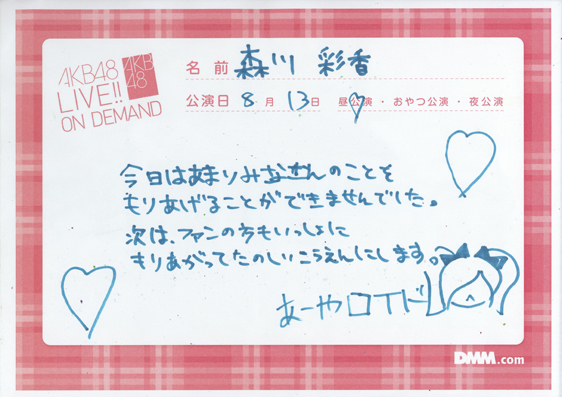 AKB48
LIVE!!
ON DEMAND
AKB
48
名前 森川 彩香
公演日 8月 13日 昼公演・おやつ公演・夜公演
今日はあまりみなさんのことを
もりあげることができませんでした。
次は、ファンの方もいっしょに
もりあがってたのしいこうえんにします。
あーやロイド
DMM.com